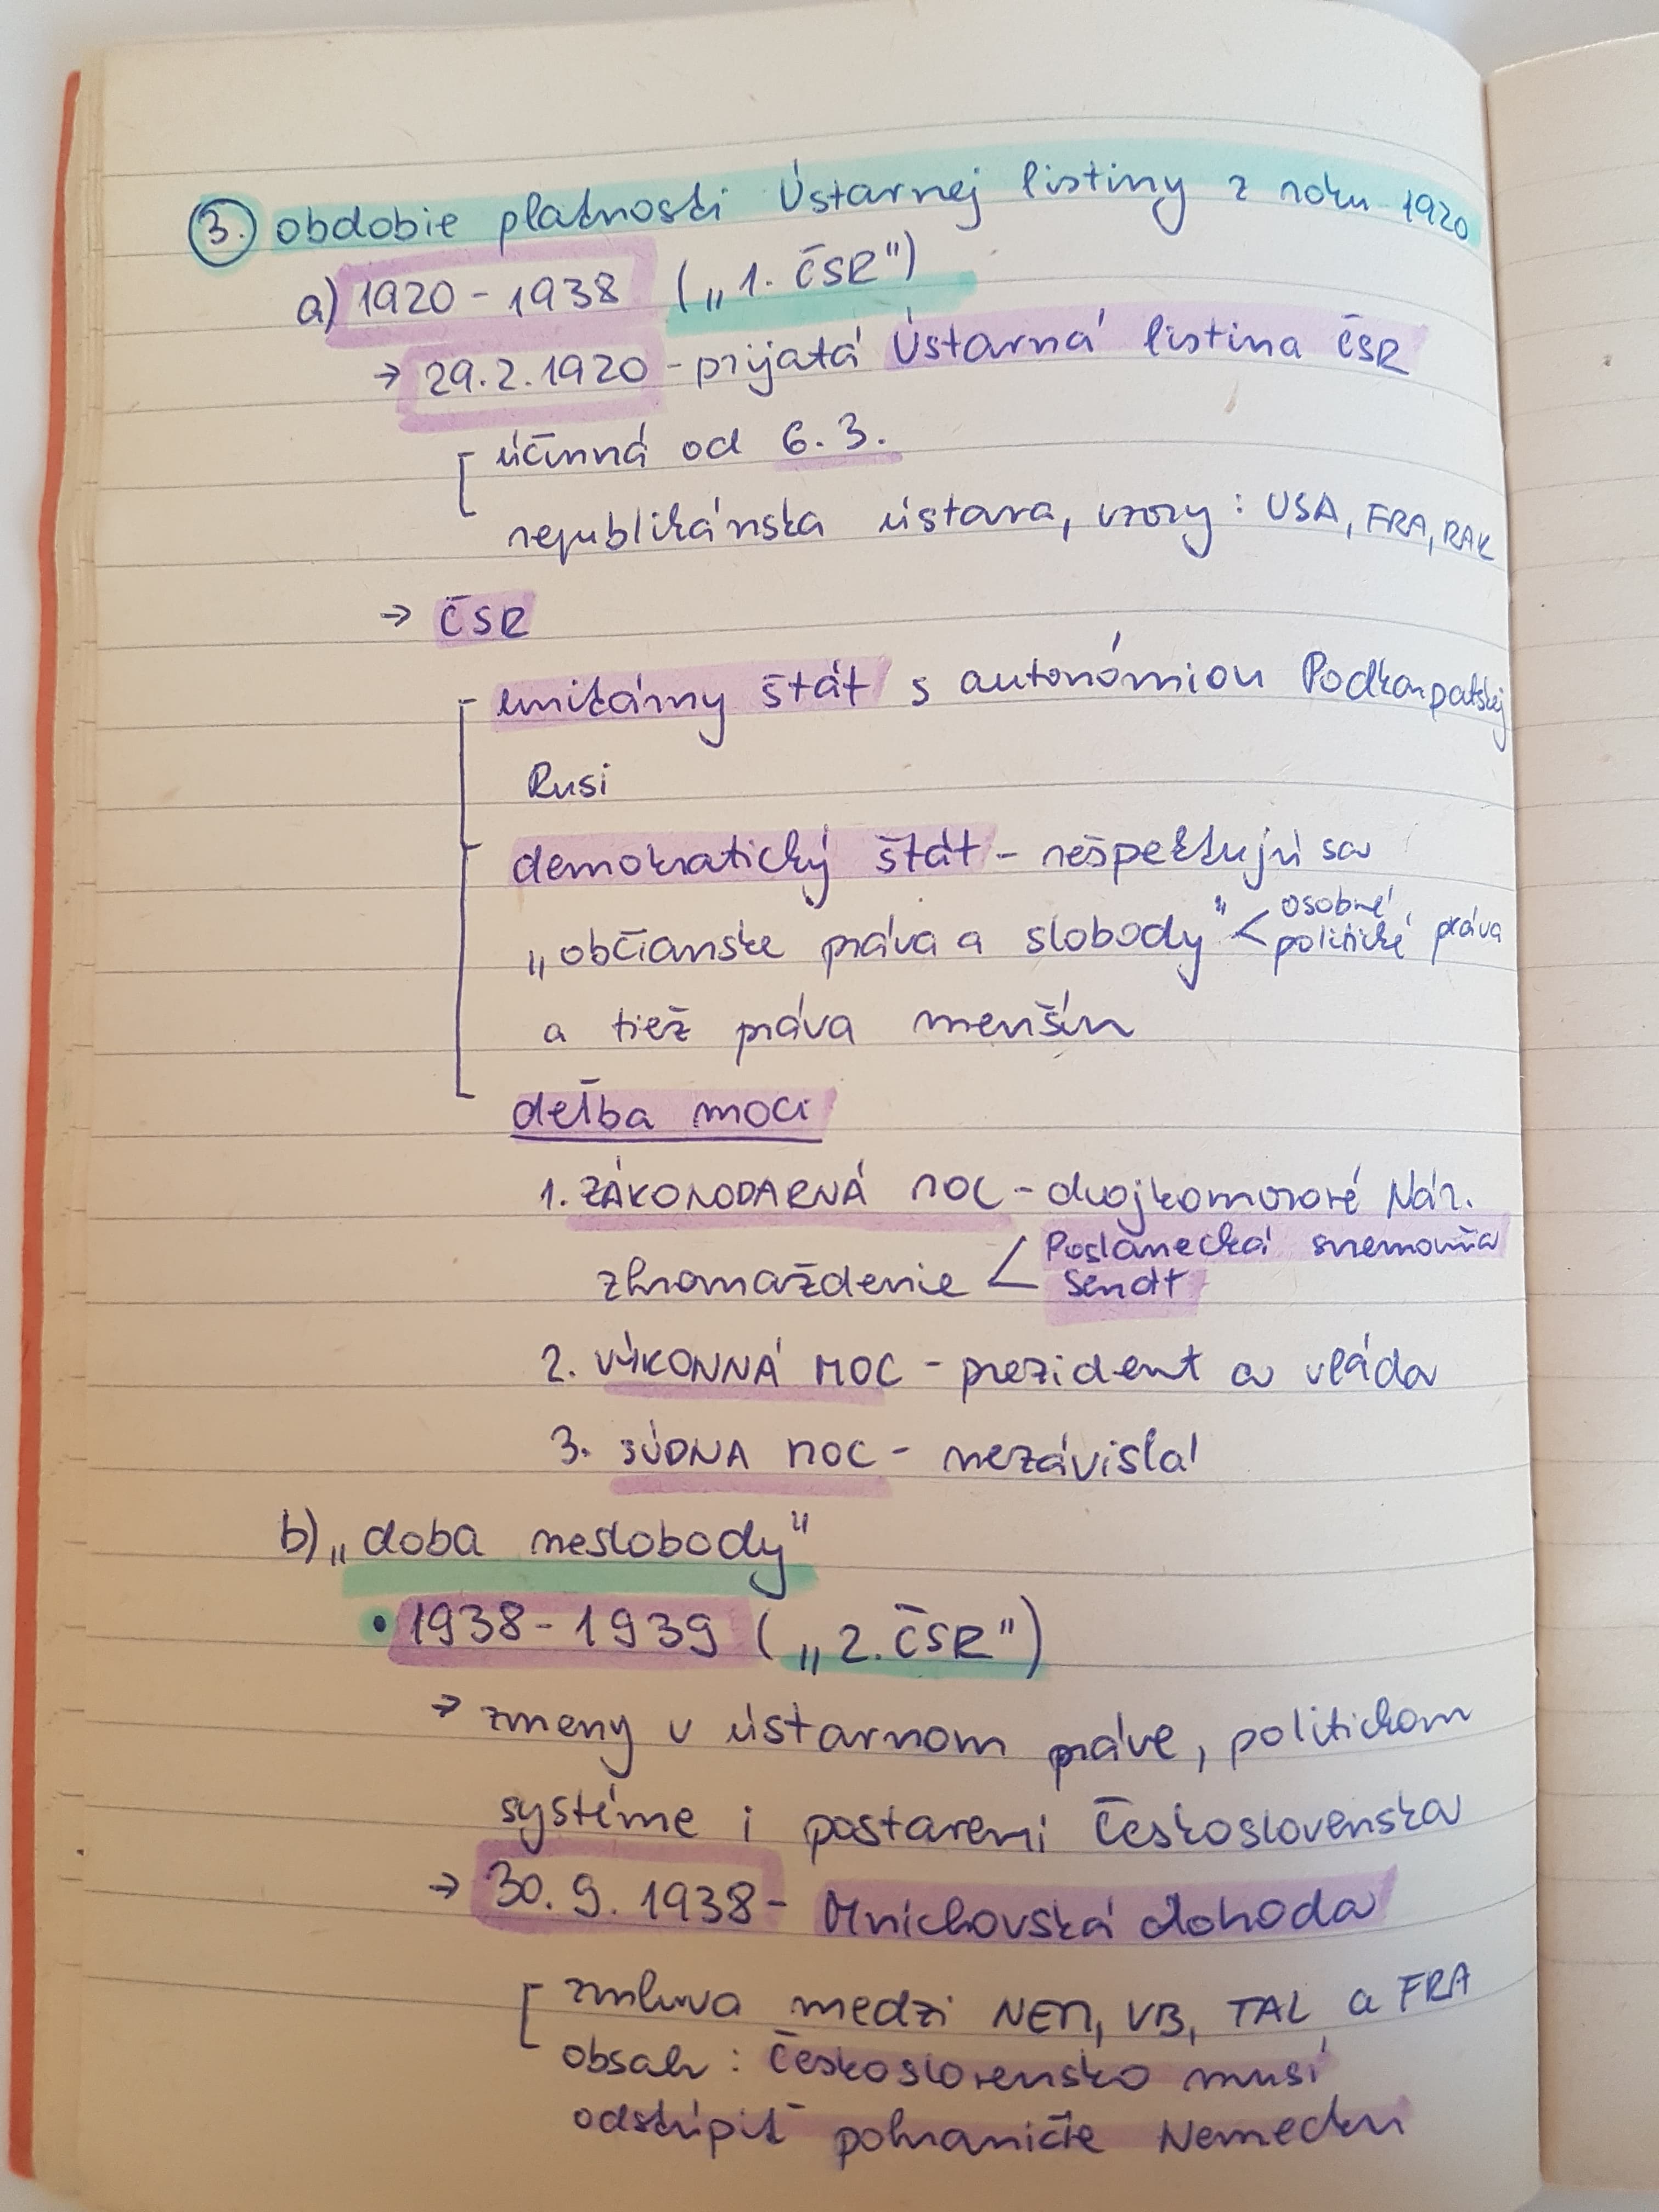 3. obdobie platnosti Ústavnej listiny z roku 1920
a) 1920 - 1938 („1. ČSR")
→ 29.2.1920 - prijatá Ústavná listina ČSR
účinná od 6.3.
republikánska ústava, vzory: USA, FRA, RAK
→ ČSR
unitárny štát s autonómiou Podkarpatskej
Rusi
demokratický štát - rešpektujú sa
„občianske práva a slobody" < osobné, politické práva
a tiež práva menšín
deľba moci
1. ZÁKONODARNÁ MOC - dvojkomorové Nár.
zhromaždenie < Poslanecká snemovňa
Senát
2. VÝKONNÁ MOC - prezident a vláda
3. SÚDNA MOC - nezávislá
b) „doba neslobody"
• 1938 - 1939 („2. ČSR")
→ zmeny v ústavnom práve, politickom
systéme i postavení Československa
→ 30. 9. 1938 - Mníchovská dohoda
zmluva medzi NEM, VB, TAL a FRA
obsah: Československo musí
odstúpiť pohraničie Nemecku